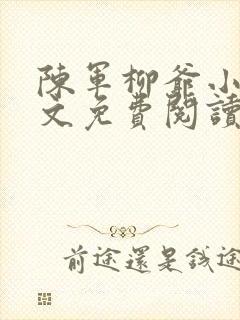 陳軍柳爺小
文免費閱讀
前途還是錢途